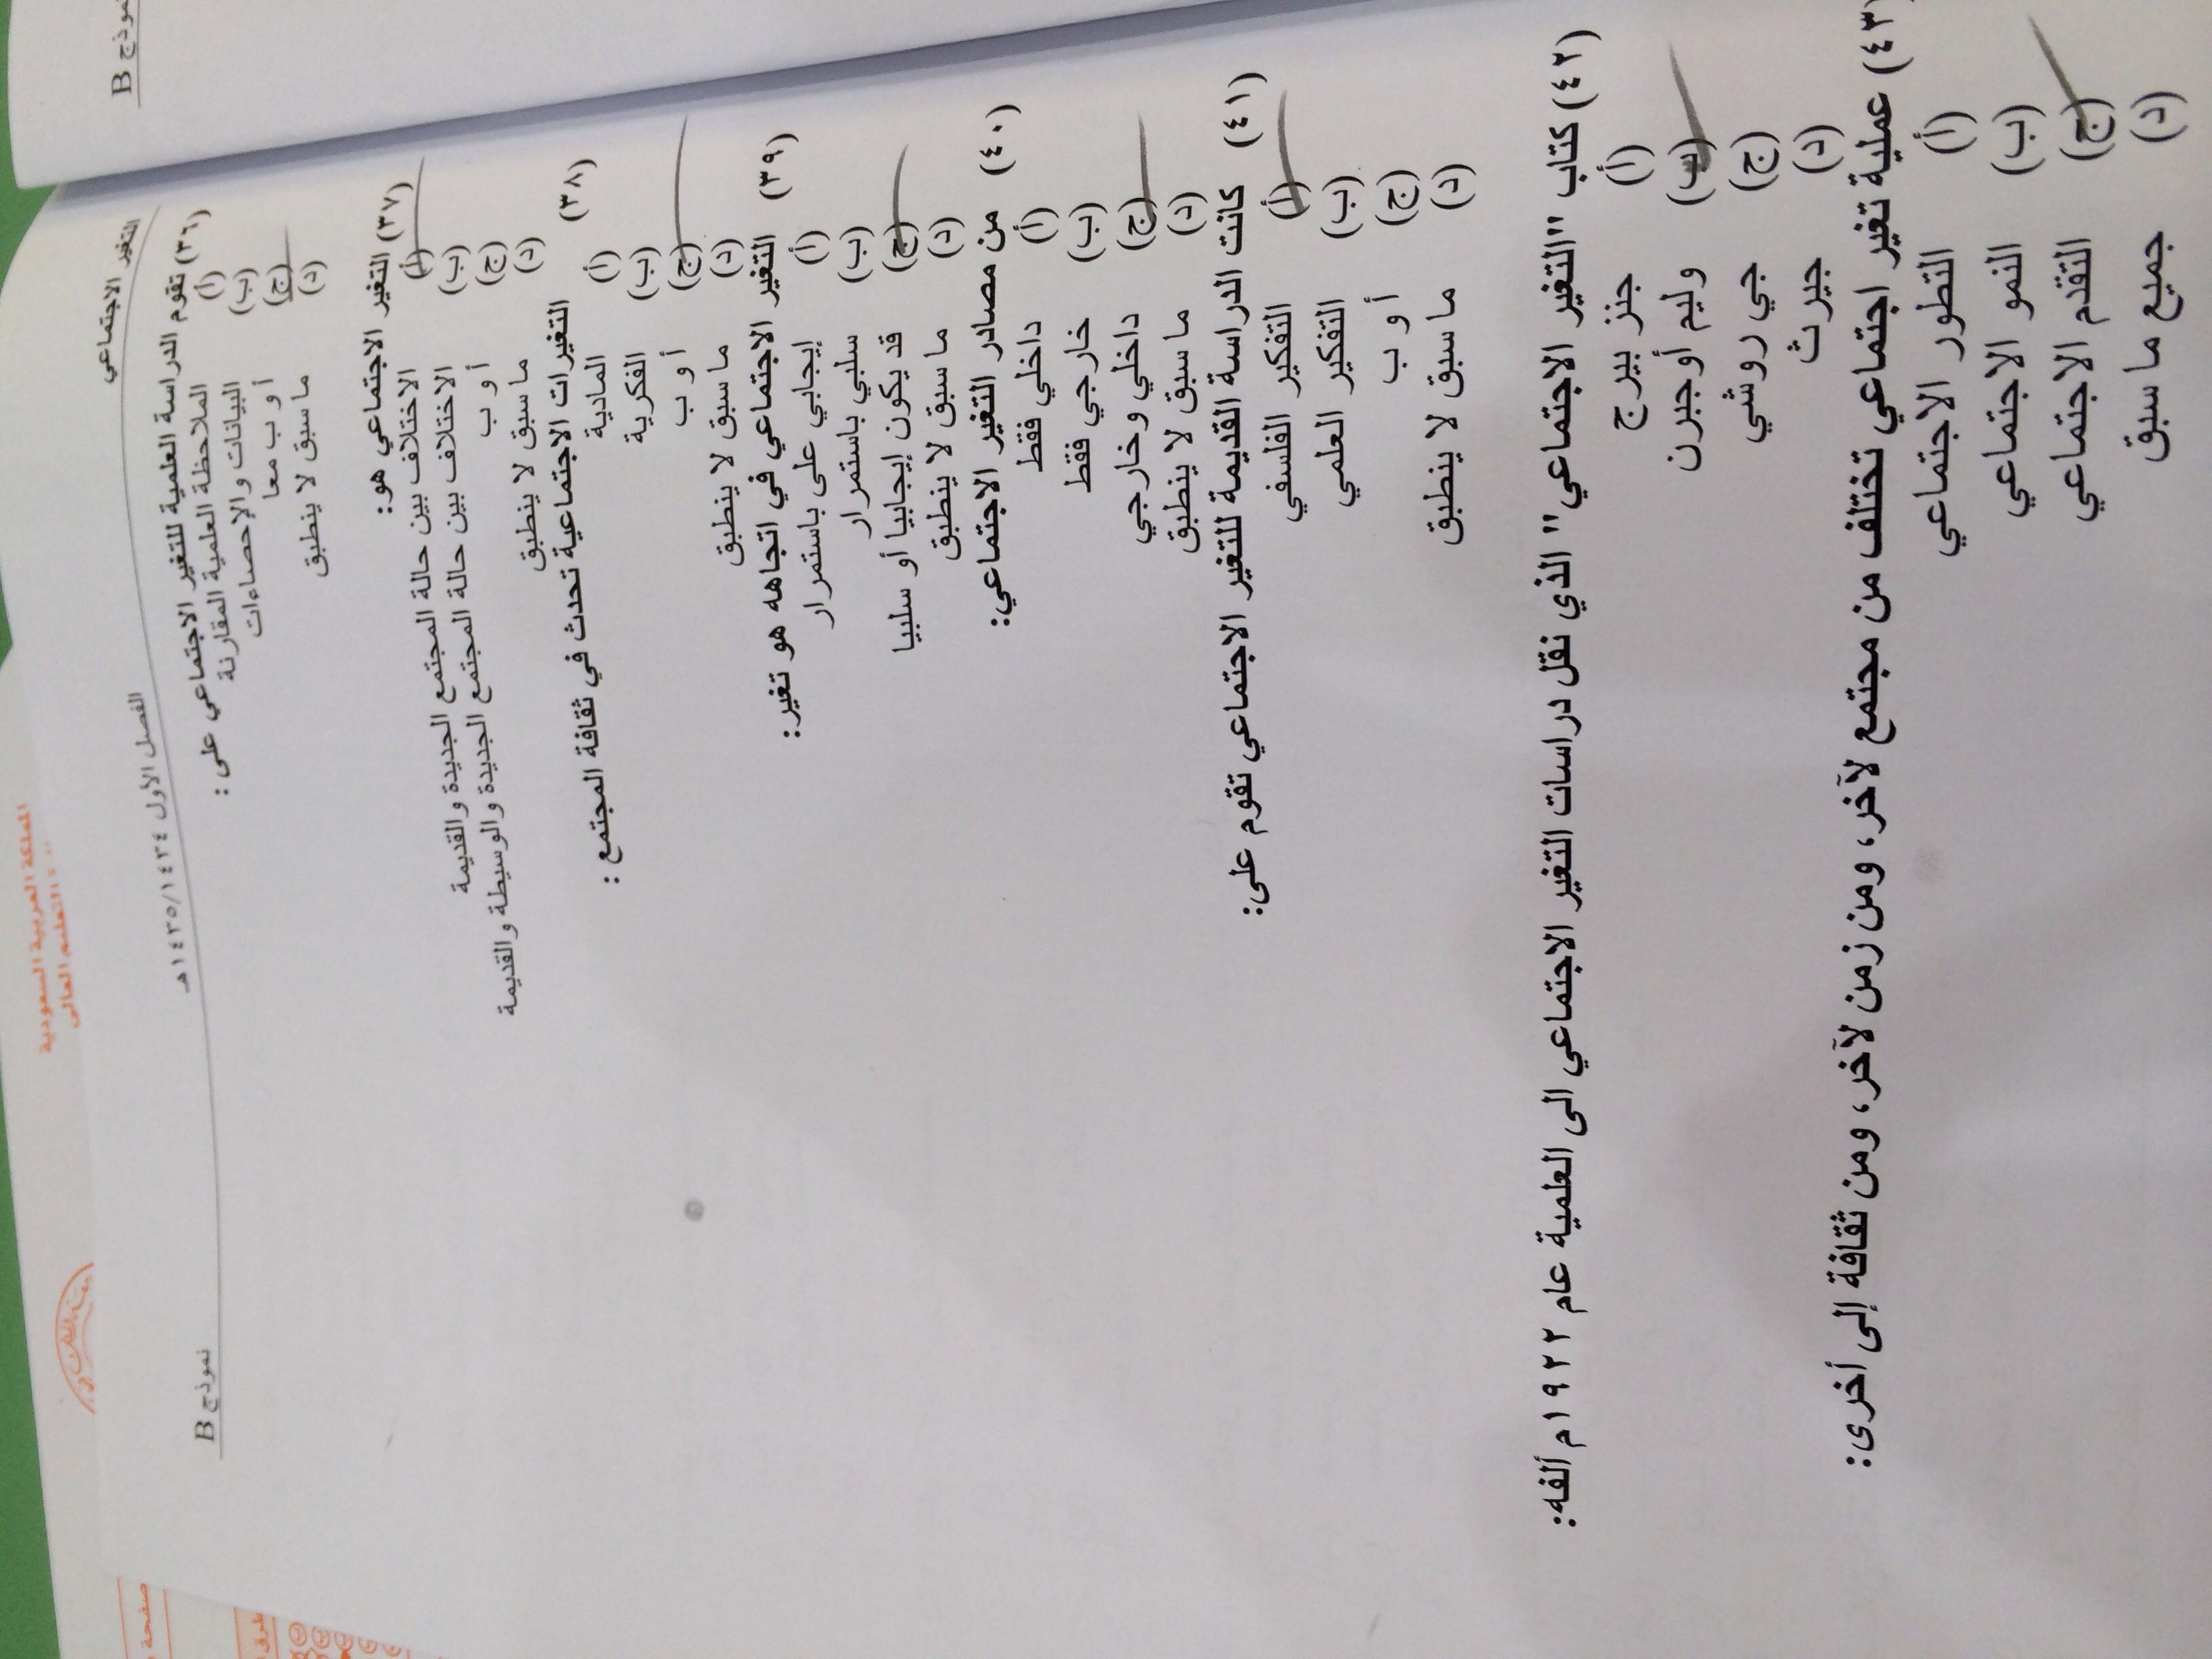 نموذج B
المملكة العربية السعودية
التعليم العالي
التغير الاجتماعي
الفصل الأول ١٤٣٥/١٤٣٤هـ
نموذج B
(٣٦) تقوم الدراسة العلمية للتغير الاجتماعي على :
(أ) الملاحظة العلمية المقارنة
(ب) البيانات والاحصاءات
(ج) أ و ب معا
(د) ما سبق لا ينطبق
(٣٧) التغير الاجتماعي هو:
(أ) الاختلاف بين حالة المجتمع الجديدة والقديمة
(ب) الاختلاف بين حالة المجتمع الجديدة والوسيطة والقديمة
(ج) أ و ب
(د) ما سبق لا ينطبق
(٣٨) التغيرات الاجتماعية تحدث في ثقافة المجتمع :
(أ) المادية
(ب) الفكرية
(ج) أ و ب
(د) ما سبق لا ينطبق
(٣٩) التغير الاجتماعي في اتجاهه هو تغير:
(أ) إيجابي على باستمرار
(ب) سلبي باستمرار
(ج) قد يكون إيجابيا أو سلبيا
(د) ما سبق لا ينطبق
(٤٠) من مصادر التغير الاجتماعي:
(أ) داخلي فقط
(ب) خارجي فقط
(ج) داخلي وخارجي
(د) ما سبق لا ينطبق
(٤١) كانت الدراسة القديمة للتغير الاجتماعي تقوم على:
(أ) التفكير الفلسفي
(ب) التفكير العلمي
(ج) أ و ب
(د) ما سبق لا ينطبق
(٤٢) كتاب "التغير الاجتماعي" الذي نقل دراسات التغير الاجتماعي الى العلمية عام ١٩٢٢م ألفه:
(أ) جنز بيرج
(ب) وليم أوجبرن
(ج) جي روشي
(د) جيرث
(٤٣) عملية تغير اجتماعي تختلف من مجتمع لآخر، ومن زمن لآخر، ومن ثقافة إلى أخرى:
(أ) التطور الاجتماعي
(ب) النمو الاجتماعي
(ج) التقدم الاجتماعي
(د) جميع ما سبق
صفحة